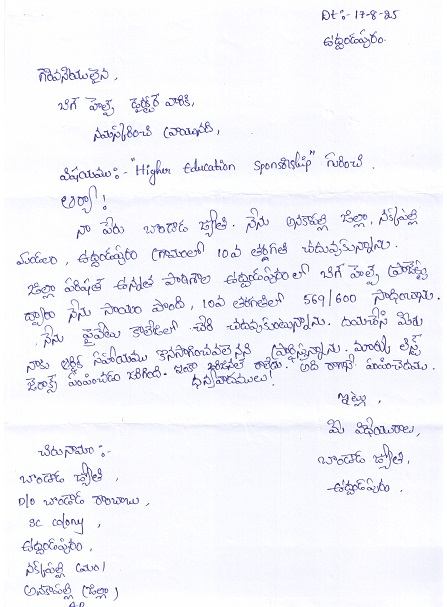 Dt :- 17-8-25
ఉద్దండపురం.
గౌరవనీయులైన,
బిగ్ హెల్ప్ డైరెక్టర్ వారికి,
నమస్కరించి వ్రాయునది,
విషయము :- "Higher Education Sponsorship" గురించి.
ఆర్యా!
నా పేరు బొండాడ జ్యోతి. నేను అనకాపల్లి జిల్లా, నక్కపల్లి
మండలం, ఉద్దండపురం గ్రామంలో 10వ తరగతి చదువుకున్నాను.
జిల్లా పరిషత్ ఉన్నత పాఠశాల ఉద్దండపురం లో బిగ్ హెల్ప్ ప్రాజెక్ట్
ద్వారా నేను సాయం పొంది, 10వ తరగతిలో 569/600 సాధించాను.
నేను ప్రైవేటు కాలేజీలో చేరి చదువుకుంటున్నాను. దయచేసి మీరు
నాకు ఆర్థిక సహాయము కొనసాగించవలెనని ప్రార్థిస్తున్నాను. మార్కు లిస్ట్
జెరాక్స్ పంపించడం జరిగింది. ఇంకా ఒరిజినల్ రాలేదు. అది రాగానే పంపించెదము.
ధన్యవాదములు!
ఇట్లు,
మీ విధేయురాలు,
బొండాడ జ్యోతి,
ఉద్దండపురం.
చిరునామా :-
బొండాడ జ్యోతి,
D/o బొండాడ రాంబాబు,
SC colony,
ఉద్దండపురం,
నక్కపల్లి (మం)
అనకాపల్లి (జిల్లా)
AP